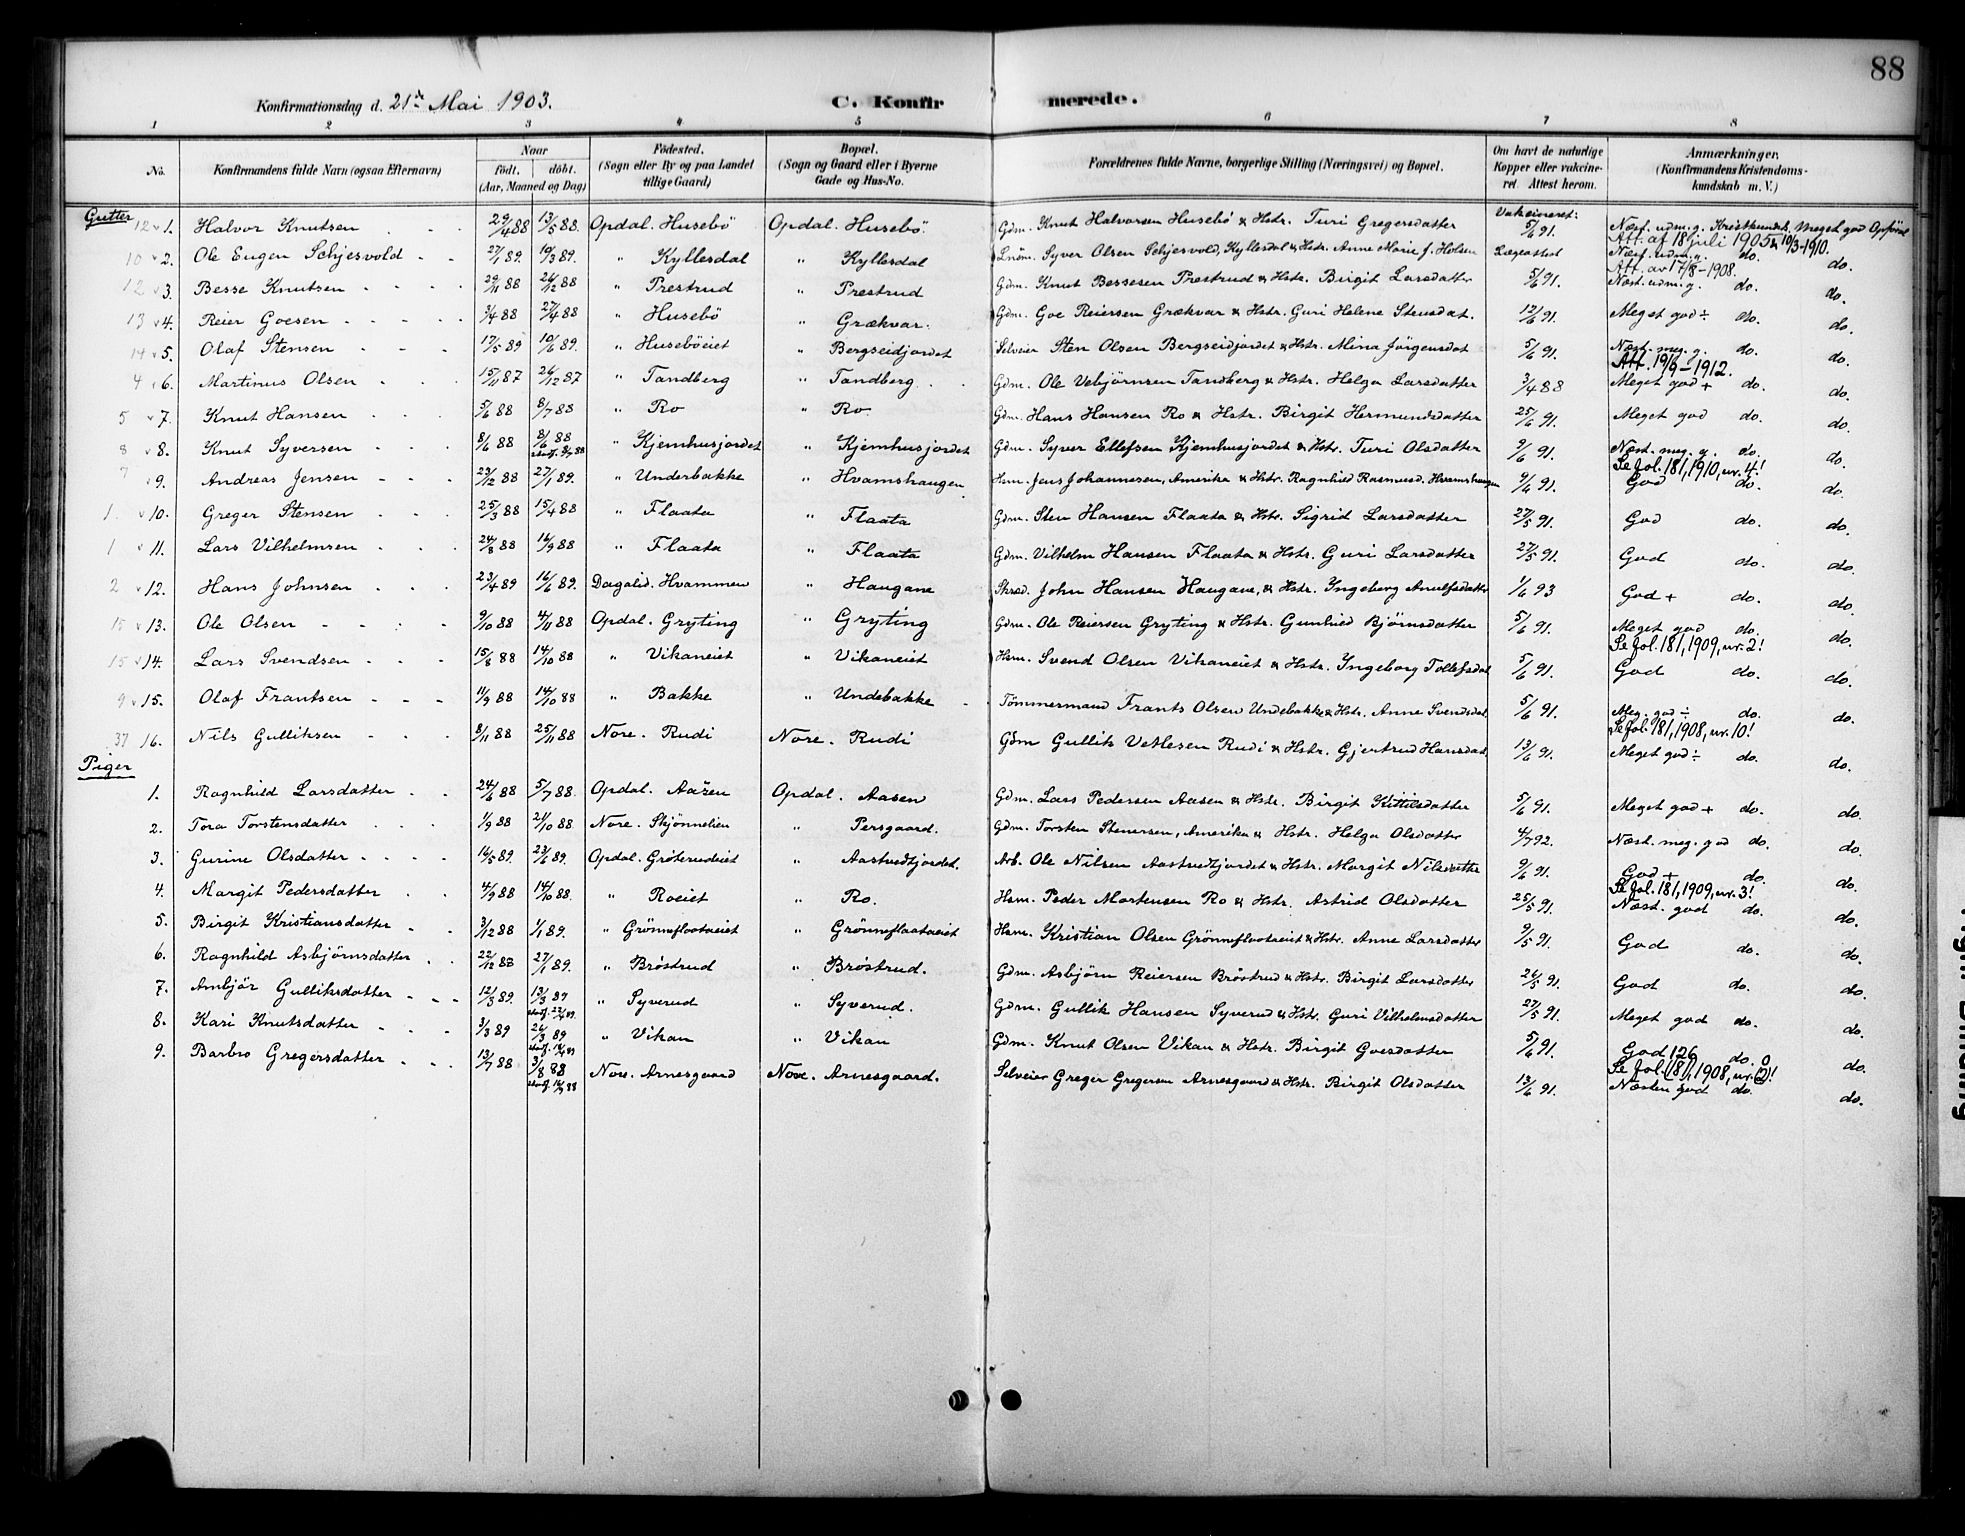 88
Konfirmationsdag d. 21de Mai 1903. C. Konfirmerede.
1 2 3 4 5 6 7 8
No. Konfirmandens fulde Navn (ogsaa Efternavn) Naar født. døbt. (Aar, Maaned og Dag) Fødested. (Sogn eller By og paa Landet tillige Gaard) Bopæl. (Sogn og Gaard eller i Byerne Gade og Hus-No. Forældrenes fulde Navne, borgerlige Stilling (Næringsvei) og Bopæl. Om havt de naturlige Kopper eller vakcineret. Attest herom. Anmærkninger. (Konfirmandens Kristendomskundskab m. V.)
Gutter
12 1. Halvor Knutsen 29/4 88 13/5 88. Opdal. Husebö Opdal. Husebö. Gdm. Knut Halvorsen Husebö & Hstr. Turi Gregersdatter Vakcineret: 5/6 91. Næst. udm. g. Kristkundsk. Meget god Opførsel
Att. af 18 juli 1905 & 10/3-1910.
10 2. Ole Eugen Schjesvold 27/1 89. 10/3 89. " Kyllesdal " Kyllesdal Syver Olsen Schjesvold, Kyllesdal & Hstr. Anne Marie J. Holsen Lægeattest Næst. udm. g. do. do.
Att. av 17/8-1908.
12 3. Besse Knutsen 29/11 88 26/12 88 " Prestrud " Prestrud Gdm. Knut Bessesen Prestrud & Hstr. Birgit Larsdatter 5/6 91. Næst. udm. g. do. do.
13 4. Reier Goesen 3/4 88 27/4 88 " Husebö " Grækvar. Gdm. Goe Reiersen Grækvar & Hstr. Guri Helene Stensdat. 12/6 91. Meget god ÷ do. do.
14 5. Olaf Stensen 17/5 89 10/6 89. " Huseböeiet " Bergseidjordet Selveier Sten Olsen Bergseidjordet & Hstr. Mina Jörgensdat 5/6 91. Næst. meg. g. do. do.
Att. 19/9-1912.
4 6. Martinus Olsen 15/11 87 26/12 87 " Tandberg " Tandberg Gdm. Ole Vebjörnsen Tandberg & Hstr. Helga Larsdatter 3/4 88 Meget god + do. do.
5 7. Knut Hansen 5/6 88 8/7 88 " Ro " Ro Gdm. Hans Hansen Ro & Hstr. Birgit Hermundsdatter 25/6 91. Meget god do. do.
8 8. Knut Syversen 8/6 88 9/6 88 " Kjemhusjordet " Kjemhusjordet Gdm. Syver Ellefsen Kjemhusjordet & Hstr. Turi Olsdatter 9/6 91. Næst. meg. g. do. do.
Se fol. 181, 1910, nr. 4!
7 9. Andreas Jensen 23/12 88 27/1 89. " Underbakke " Hvamshaugen Hsm. Jens Johannesen, Amerika & Hstr. Ragnhild Rasmusd. Hvamshaugen 9/6 91. God do. do.
1 10. Greger Stensen 25/3 88 15/4 88 " Flaata " Flaata Gdm. Sten Hansen Flaata & Hstr. Sigrid Larsdatter 27/5 91. God do. do.
1 11. Lars Vilhelmsen 24/8 88 16/9 88 " Flaata " Flaata Gdm. Vilhelm Hansen Flaata & Hstr. Guri Larsdatter 27/5 91. God do. do.
2 12. Hans Johnsen 23/4 89 16/6 89. Dagalid. Hvammen " Haugane Skræd. John Hansen Haugane, & Hstr. Yngeborg Arnulfsdatter 1/6 93 God + do. do.
15 13. Ole Olsen 9/10 88 4/11 88 Opdal. Gryting " Gryting Gdm. Ole Reiersen Gryting & Hstr. Gunhild Bjørnsdatter 5/6 91. Meget god do. do.
Se fol. 181, 1909, nr. 2!
15 14. Lars Svendsen 15/8 88 14/10 88 " Vikaneiet " Vikaneiet Hsm. Svend Olsen Vikaneiet & Hstr. Yngeborg Tollefsdat 5/6 91. God do. do.
9 15. Olaf Frantsen 11/9 88 14/10 88 " Bakke " Undebakke Tömmermand Frants Olsen Undebakke & Hstr. Anne Svendsdat 5/6 91. Meg. god ÷ do. do.
Se fol. 181, 1908, nr. 10!
37 16. Nils Gulliksen 8/11 88 25/11 88 Nore. Rudi Nore. Rudi Gdm Gullik Vetlesen Rudi & Hstr. Gjertrud Hansdat. 13/6 91. Meget god ÷ do. do.
Piger
1. Ragnhild Larsdatter 24/6 88 5/7 88. Opdal. Aasen Opdal. Aasen Gdm. Lars Pedersen Aasen & Hstr. Birgit Kittilsdatter 5/6 91. Meget god + do. do.
2. Tora Torstensdatter 1/9 88 21/10 88. Nore. Skjönnelien " Persgaard. Gdm. Torsten Stenersen, Amerika & Hstr. Helga Olsdatter 4/7 92. Næst. meg. god do. do.
3. Gurine Olsdatter 14/5 89. 23/6 89. Opdal. Gröterudeiet " Aastvedtjordet. Arb. Ole Nilsen Aastvedtjordet & Hstr. Margit Nilsdatter 9/6 91. God + do. do.
Se fol. 181, 1909, nr. 3!
4. Margit Pedersdatter 4/9 88 14/10 88. " Roeiet " Ro. Hsm. Peder Mortensen Ro & Hstr. Astrid Olsdatter 25/5 91. Næst. god do. do.
5. Birgit Kristiansdatter 3/12 88 1/1 89. " Grönneflaataeiet " Grönneflaataeiet Hsm. Kristian Olsen Grönneflaataeiet & Hstr. Anne Larsdatter 9/5 91. God do. do.
6. Ragnhild Asbjörnsdatter 22/12 88 27/1 89. " Bröstrud " Bröstrud. Gdm. Asbjörn Reiersen Bröstrud & Hstr. Birgit Larsdatter 26/5 91. God do. do.
7. Ambjör Gulliksdatter 12/3 89. 13/3 89 " Syverud " Syverud. Gdm. Gullik Hansen Syverud & Hstr. Guri Vilhelmsdatter 27/5 91. Meget god do. do.
8. Kari Knutsdatter 3/3 89 26/3 89 " Vikan " Vikan Gdm. Knut Olsen Vikan & Hstr. Birgit Goesdatter 5/6 91. God do. do.
Se fol. 181, 1908, nr.
9. Barbro Gregersdatter 13/7 88. 3/8 88 Nore. Arnesgaard Nore. Arnesgaard. Selveier Greger Gregersen Arnesgaard & Hstr. Birgit Olsdatter 13/6 91. Næsten god do. do.